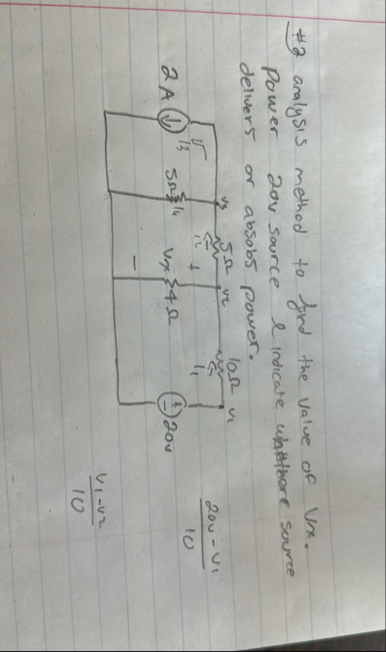 #2 analysis method to find the value of Vx.
Power 20v source & indicate whether source
delivers or absobs power.
V3
5Ω
i2
V2
10Ω
i1
V1
2A
i3
5Ω
i4
+
Vx
4Ω
-
+
-
20v
20v - V1
10
V1 - V2
10